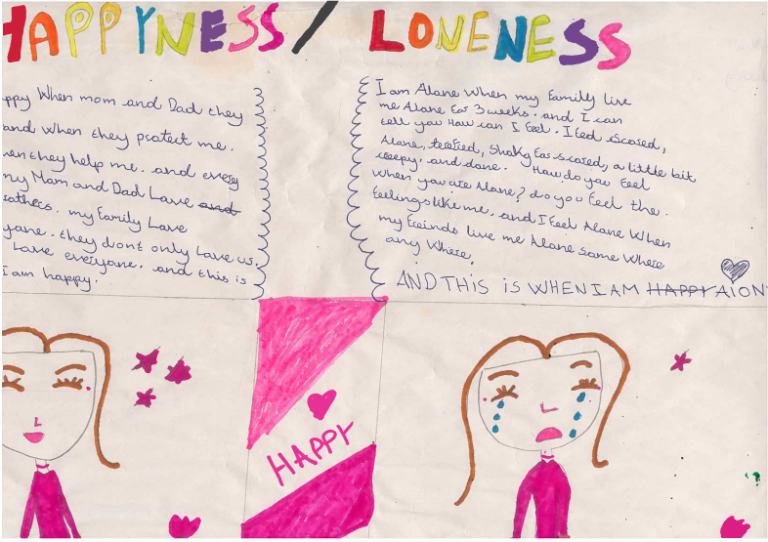 HAPPYNESS / LONENESS
ppy When mom and Dad they
and when they protect me.
hen they help me. and every
my Mom and Dad Lave and
athers. my Family Lave
yane. they dont only Lave us.
Lave everyane. and this is
I am happy.
I am Alane When my Family live
me Alane Far 3 weeks. and I can
tell you How can I Feel. I Feel scared,
Alane, Shaky Far scared, a little bit
creepy. and dane. How do you Feel
When you are Alane? do you Feel the.
Feelings like me. and I Feel Alane When
my Freinds live me Alane Same Where
any Where,
AND THIS IS WHEN I AM HAPPY AlON
HAPPY